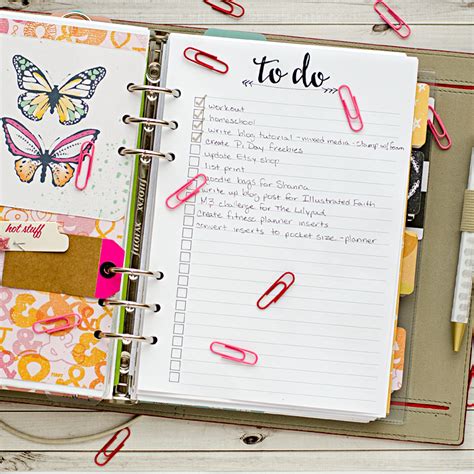 to do
workout
homeschool
write blog tutorial - mixed media - stamp w/foam
create Pi Day freebies
update Etsy shop
list print
goodie bags for Shanna
write up blog post for Illustrated Faith
challenge for The Lilypad
create fitness planner inserts
convert inserts to pocket size - planner
hot stuff